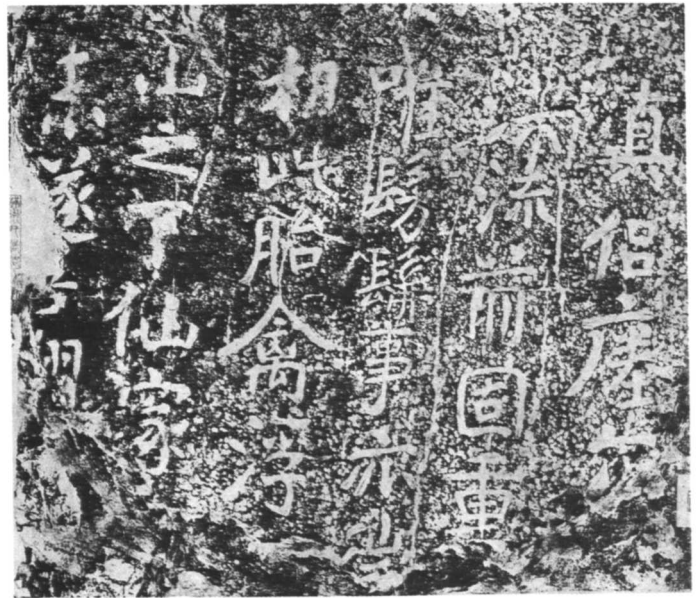 真侶瘞
流前固重
唯髣髴事亦
相此胎禽浮
山之下仙家
未遂吾翔